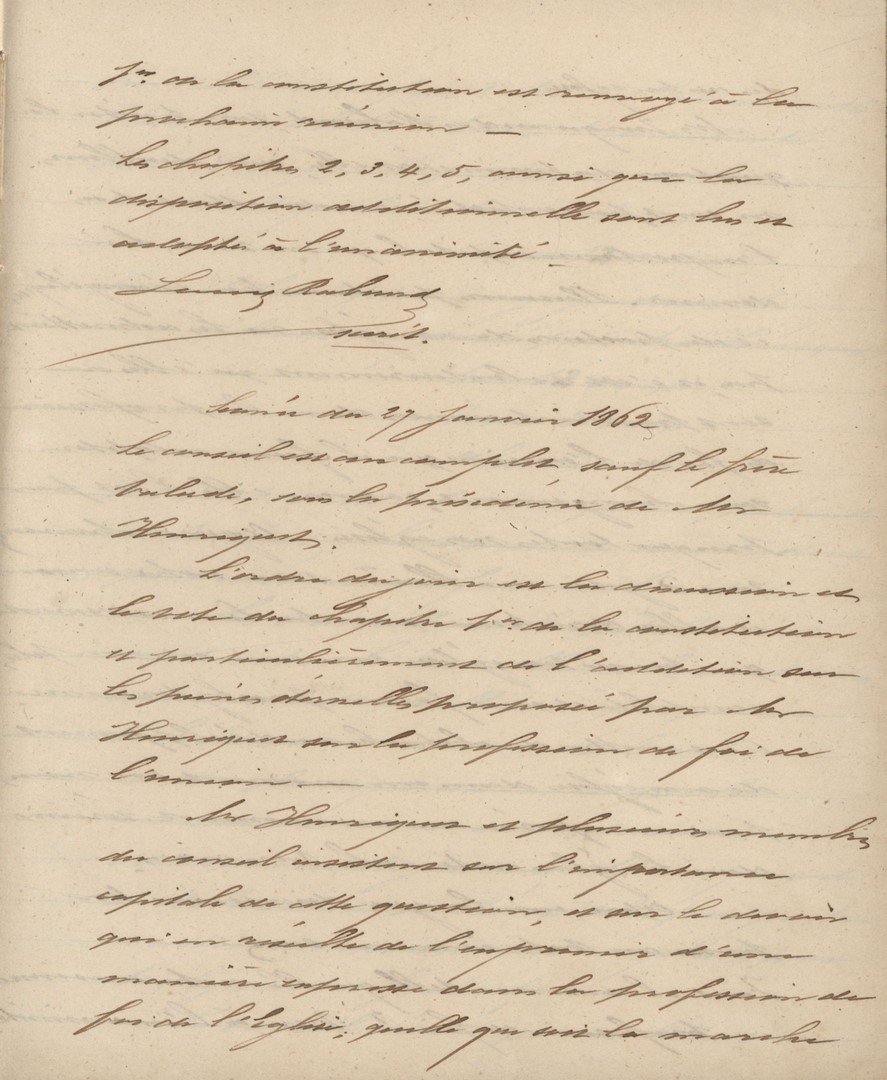 1er de la constitution est renvoyé à la
prochaine réunion —
Les chapitres 2, 3, 4, 5, ainsi que la
disposition additionnelle sont lus et
adoptés à l'unanimité
Louis Rabaud
secrét.
Séance du 27 Janvier 1862
Le conseil est au complet, sauf le frère
Valade, sous la présidence de Mr
Henriquet.
L'ordre du jour est la discussion et
le vote du chapitre 1er de la constitution
et particulièrement de l'addition sur
les peines éternelles proposée par Mr
Henriquet sur la profession de foi de
l'union —
Mr Henriquet et plusieurs membres
du conseil insistent sur l'importance
capitale de cette question, et sur le devoir
qui en résulte de l'exprimer d'une
manière expresse dans la profession de
foi de l'Eglise, quelle que soit la marche